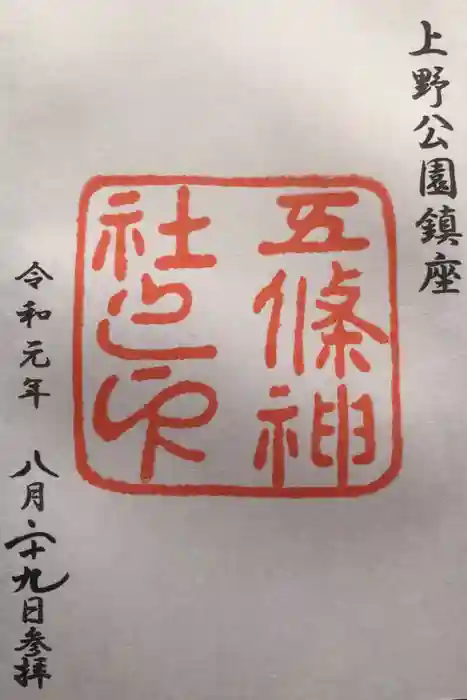 上野公園鎮座
五條神
社之印
令和元年 八月二十九日参拝